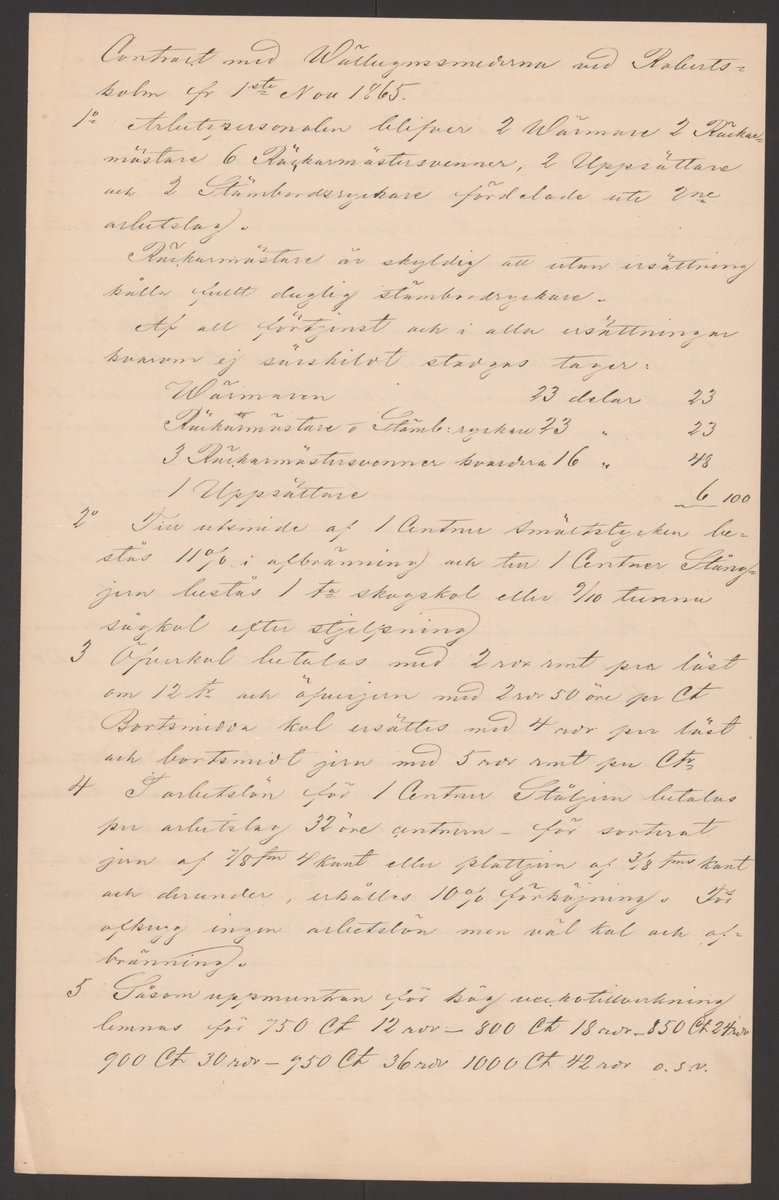 Contract med Wällugnssmederna vid Roberts=
holm fr 1ste Nov 1865.
1o Arbetspersonalen blifver 2 Wärmare 2 Räckare=
mästare 6 Räckarmästersvenner, 2 Uppsättare
och 2 Stämbordsryckare fördelade uti 2ne
arbetslag.
Räckarmästare är skyldig att utan ersättning
hålla fullt duglig stämbordryckare.
Af all förtjenst och i alla ersättningar
hvarom ej särskildt stadgas tager:
Wärmaren 23 delar 23
Räckarmästare o Stämb:ryckare 23 " 23
3 Räckarmästersvenner hvardera 16 " 48
1 Uppsättare 6 100
2o Till utsmide af 1 Centner Smältstycken be=
stås 11% i afbränning och till 1 Centner Stång=
jern bestås 1 ta skogskol eller 9/10 tunna
sågkol efter stjelpning
3 Öfverkol betalas med 2 rdr rmt per läst
om 12 tr och öfverjern med 2 rdr 50 öre pr Ct
Bortsmidda kol ersättes med 4 rdr per läst
och bortsmidt jern med 5 rdr rmt per Ctr
4 I arbetslön för 1 Centner Ståljern betalas
per arbetslag 32 öre centnern - för sorterat
jern af 7/8 tm 4kant eller plattjern af 3/8 tms kant
och derunder, erhålles 10% förhöjning. För
afhugg ingen arbetslön men väl kol och af=
bränning.
5 Såsom uppmuntran för hög veckotillverkning
lemnas för 750 Ct 12 rdr - 800 Ct 18 rdr - 850 Ct 24 rdr
900 Ct 30 rdr - 950 Ct 36 rdr 1000 Ct 42 rdr o.s.v.